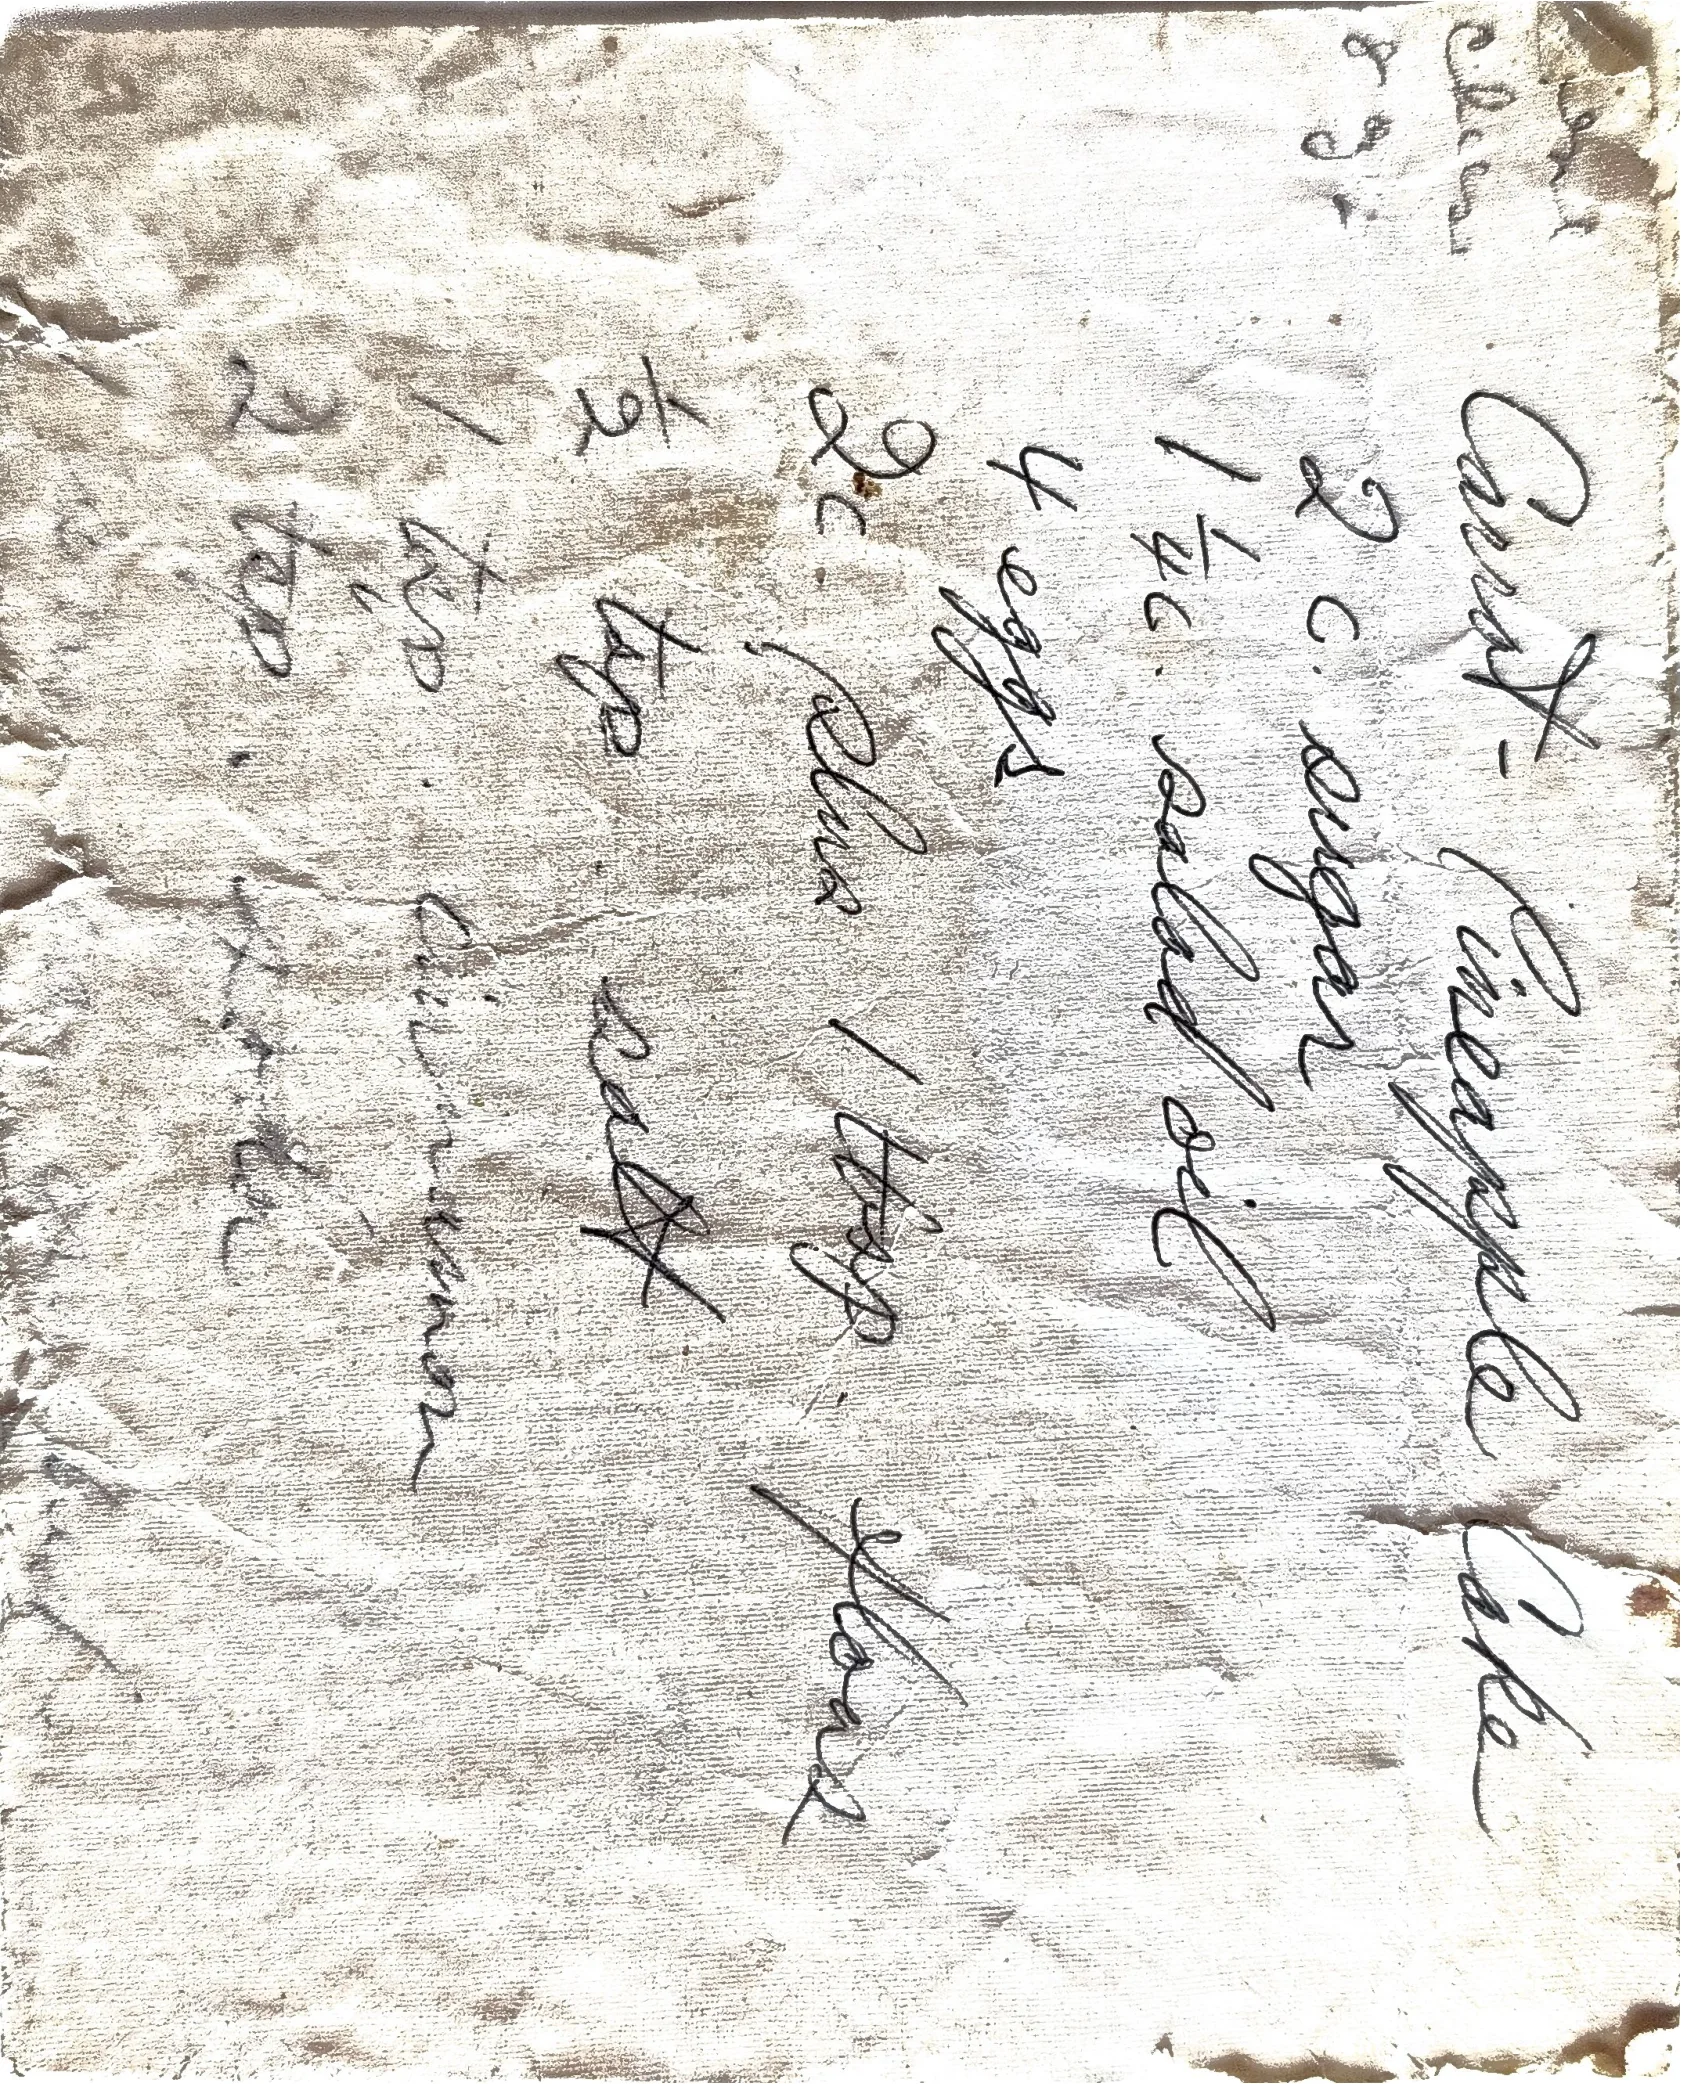 Aunt
Ellen
Carrot - Pineapple Cake
2 c. sugar
1 1/4 c. salad oil
4 eggs
2 c, plus 1 tbsp. flour
1/2 tsp salt
1 tsp. Cinnamon
2 tsp.